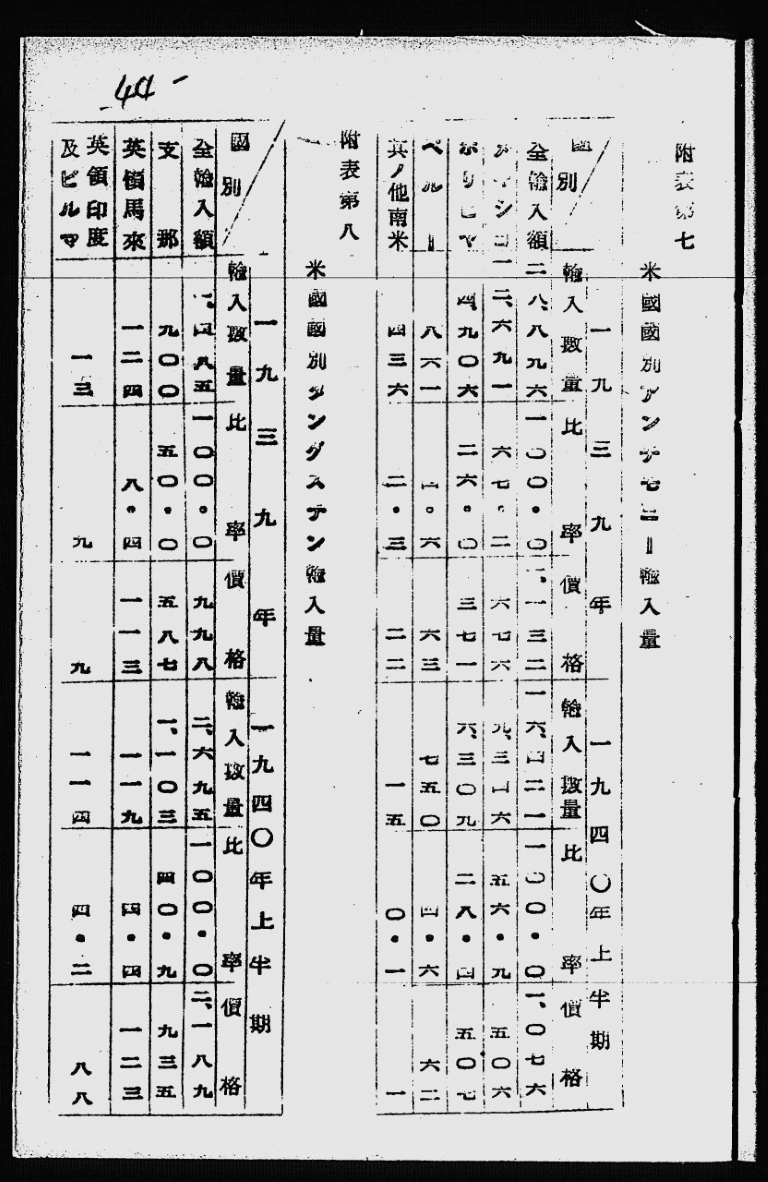 44 -
附表第七
米國國別アンチモニー輸入量
一九三九年 一九四〇年上半期
國別 輸入數量 比率 價格 輸入數量 比率 價格
全輸入額 一八、八九六 一〇〇・〇 一、一三二 一六、四二一 一〇〇・〇 一、〇七六
メキシコ 一二、六九一 六七・二 六七六 九、三四六 五六・九 五〇六
ボリビヤ 四、九〇六 二六・〇 三七一 六、三〇九 二八・四 五〇七
ペルー 八六一 四・六 六三 七五〇 四・六 六二
其ノ他南米 四三六 二・三 二二 一五 〇・一 一
附表第八
米國國別タングステン輸入量
一九三九年 一九四〇年上半期
國別 輸入數量 比率 價格 輸入數量 比率 價格
全輸入額 一、四八五 一〇〇・〇 九九八 二、六九五 一〇〇・〇 二、一八九
支那 九〇〇 五〇・〇 五八七 一、一〇三 四〇・九 九三五
英領馬來 一二四 八・四 一一三 一一九 四・四 一二三
英領印度
及ビルマ 一三 九 九 一一四 四・二 八八